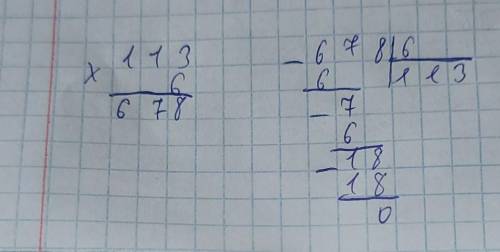 × 113
6
678
- 678 | 6
6 113
- 7
6
- 18
18
0